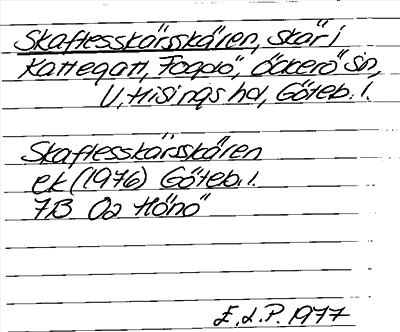 Skaftesskärsskären, skär i
Kattegatt, Fogdö, Öckerö sn,
V. Hisings hd, Göteb. l.
Skaftesskärsskären
ek (1976) Göteb. l.
7B 0a Hönö
E.L.P. 1977